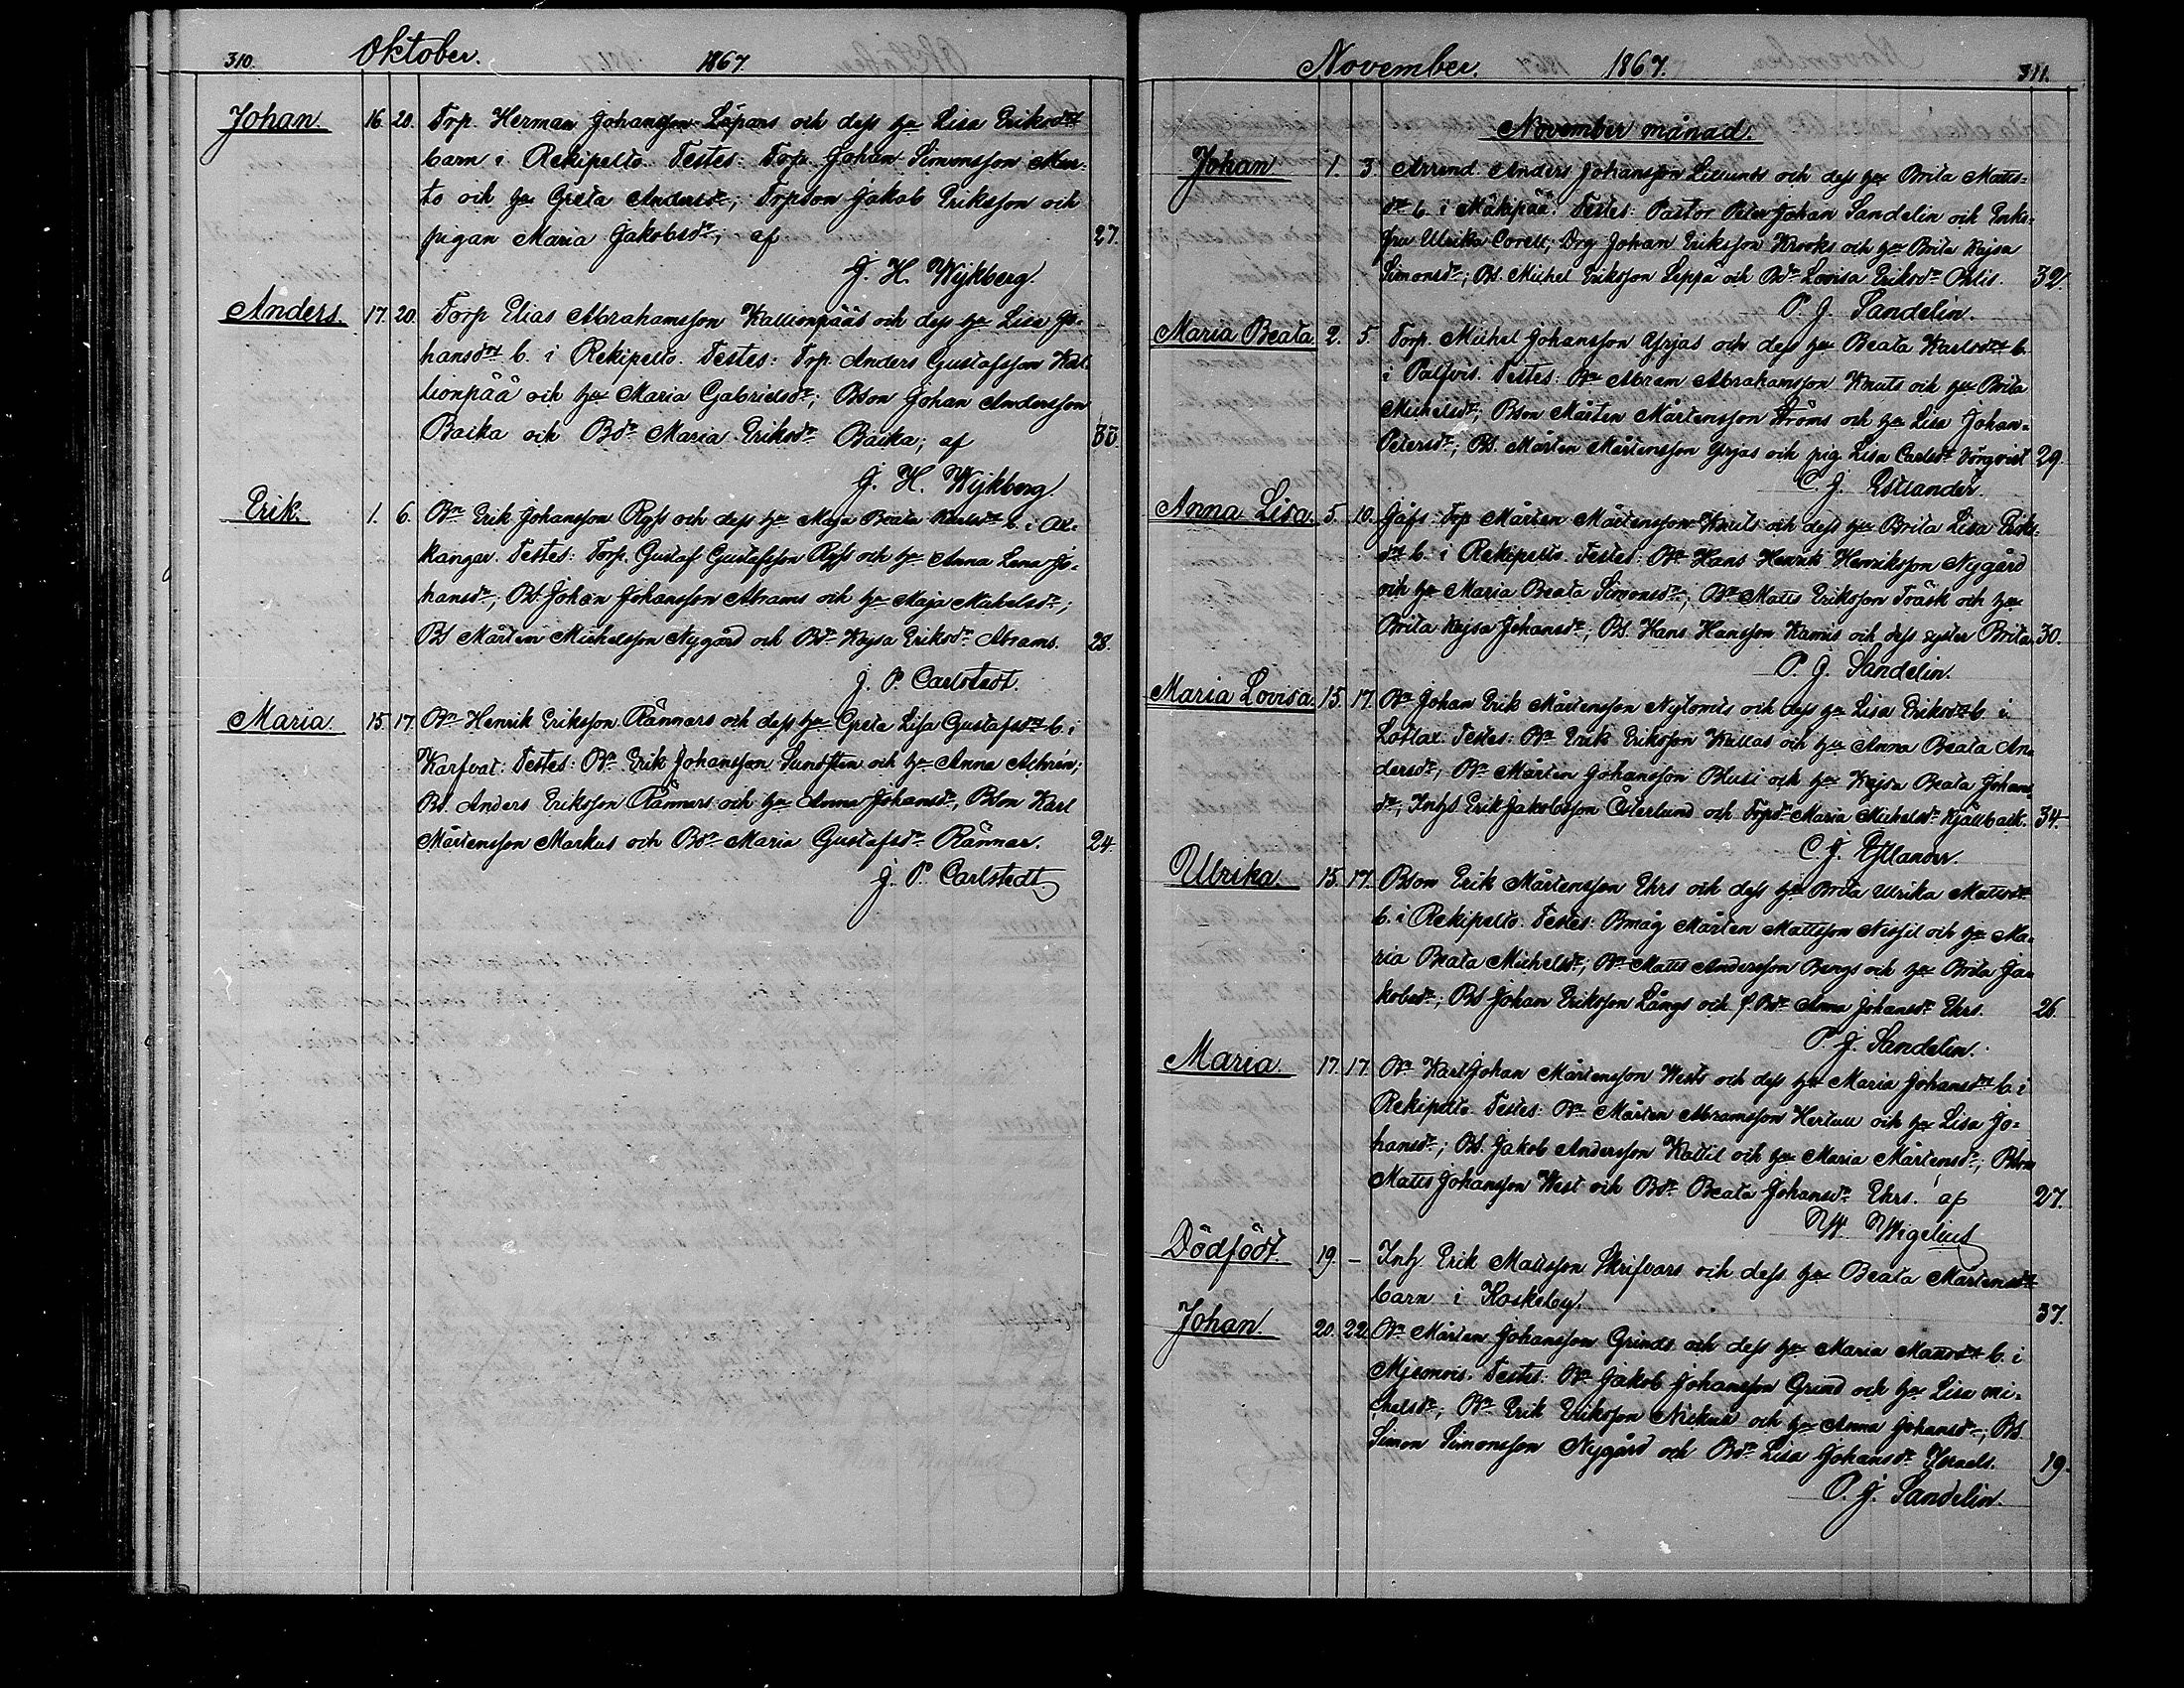 310. Oktober. 1867.
Johan. 16. 20. Torp. Herman Johansson Löpars och dess hu Lisa Eriksdrs
barn i Rekipelto. Testes: Torp. Johan Simonsson
to och hu Greta Andersdr; Torpson Jakob Eriksson och
pigan Maria Jakobsdr; af 27.
J. H. Wijkberg.
Anders. 17. 20. Torp Elias Abrahamsson Kallionpääs och dess hu Lisa Jo-
hansdrs b. i Rekipelto. Testes: Torp. Anders Gustafsson Kal-
lionpää och hu Maria Gabrielsdr; Bson Johan Andersson
Backa och Bdr Maria Eriksdr Backa; af 38.
J. H. Wijkberg.
Erik. 1. 6. Bn Erik Johansson Ryss och dess hu Maja Beata Karlsdrs b. i Ok-
kangar. Testes: Torp. Gustaf Gustafsson Ryss och hu Anna Lena Jo-
hansdr; Bd Johan Johansson Abrams och hu Maja Michelsdr;
Bs Mårten Michelsson Nygård och Bdr Kajsa Eriksdr Abrams. 28.
J. P. Carlstedt.
Maria. 15. 17. Bn Henrik Eriksson Rännars och dess hu Greta Lisa Gustafsdrs b. i
Karfvat. Testes: Bn Erik Johansson Sundsten och hu Anna Achrén;
Bd. Anders Eriksson Rännars och hu Anna Johansdr, Bson Karl
Mårtensson Markus och Bdr Maria Gustafsdr Rännar. 24.
J. P. Carlstedt
November. 1867. 311.
November månad.
Johan 1. 3. Arrend. Anders Johansson Lillsunds och dess hu Brita Matts-
drs b. i Mäkipää. Testes: Pastor Peter Johan Sandelin och Enke-
fru Ulrika Corell; Drg Johan Eriksson Krooks och hu Brita Kajsa
Simonsdr; Bd. Michel Eriksson Leppä och Bdr Lovisa Eriksdr 32.
P. J. Sandelin.
Maria Beata. 2. 5. Torp. Michel Johansson Yrjas och dess hu Beata Karlsdrs b.
i Palfvis. Testes: Bn Abram Abrahamsson Knuts och hu Brita
Michelsdr; Bson Mårten Mårtensson Ströms och hu Lisa Johan-
Petersdr; Bd. Mårten Mårtensson Yrjas och pig Lisa Carlsdr 29.
C. J. Estlander.
Anna Lisa. 5. 10. Gåfs. Torp Mårten Mårtensson Knuts och dess hu Brita Lisa Eriks-
drs b. i Rekipelto. Testes: Bn Hans Henrik Henriksson Nygård
och hu Maria Beata Simonsdr; Bn Matts Eriksson Träsk och hu
Brita Kajsa Johansdr; Bd. Hans Hansson Kamis och dess syster Brita. 30.
P. J. Sandelin.
Maria Lovisa. 15. 17. Bn Johan Erik Mårtensson Nylonds och dess hu Lisa Eriksdrs b. i
Lotlax. Testes: Bn Erik Eriksson Kullas och hu Anna Beata An-
dersdr; Bn Mårten Johansson Blusi och hu Kajsa Beata Johans
dr; Inhs Erik Jakobsson Österlund och Torpdr Maria Michelsdr Kjällback. 34.
C. J. Estlander.
Ulrika. 15. 17. Bson Erik Mårtensson Ehrs och dess hu Brita Ulrika Mattsdrs
b. i Rekipelto. Testes: Bmåg Mårten Mattsson Nissil och hu Ma-
ria Beata Michelsdr; Bn Matts Andersson Bengs och hu Brita Ja-
kobsdr; Bd Johan Eriksson Långs och f. Bdr Anna Johansdr Ehrs. 26.
P. J. Sandelin.
Maria. 17. 17. Bn Karl Johan Mårtensson Wests och dess hu Maria Johansdrs b. i
Rekipelto. Testes: Bn Mårten Abramsson Hertull och hu Lisa Jo-
hansdr; Bd. Jakob Andersson Kattil och hu Maria Mårtensdr; Bson
Matts Johansson West och Bdr Beata Johansdr Ehrs. af 27.
W. Wigelius
Dödfödt. 19. – Inh. Erik Mattsson Skrifvars och dess hu Beata Mårtensdrs
barn i Koskeby. 37.
Johan. 20. 22. Bn Mårten Johansson Grinds och dess hu Maria Mattsdrs b. i
Mjemois. Testes: Bn Jakob Johansson Grind och hu Lisa Mi-
chelsdr; Bn Erik Eriksson Nickull och hu Anna Johansdr; Bd.
Simon Simonsson Nygård och Bdr Lisa Johansdr Israels. 19.
P. J. Sandelin.